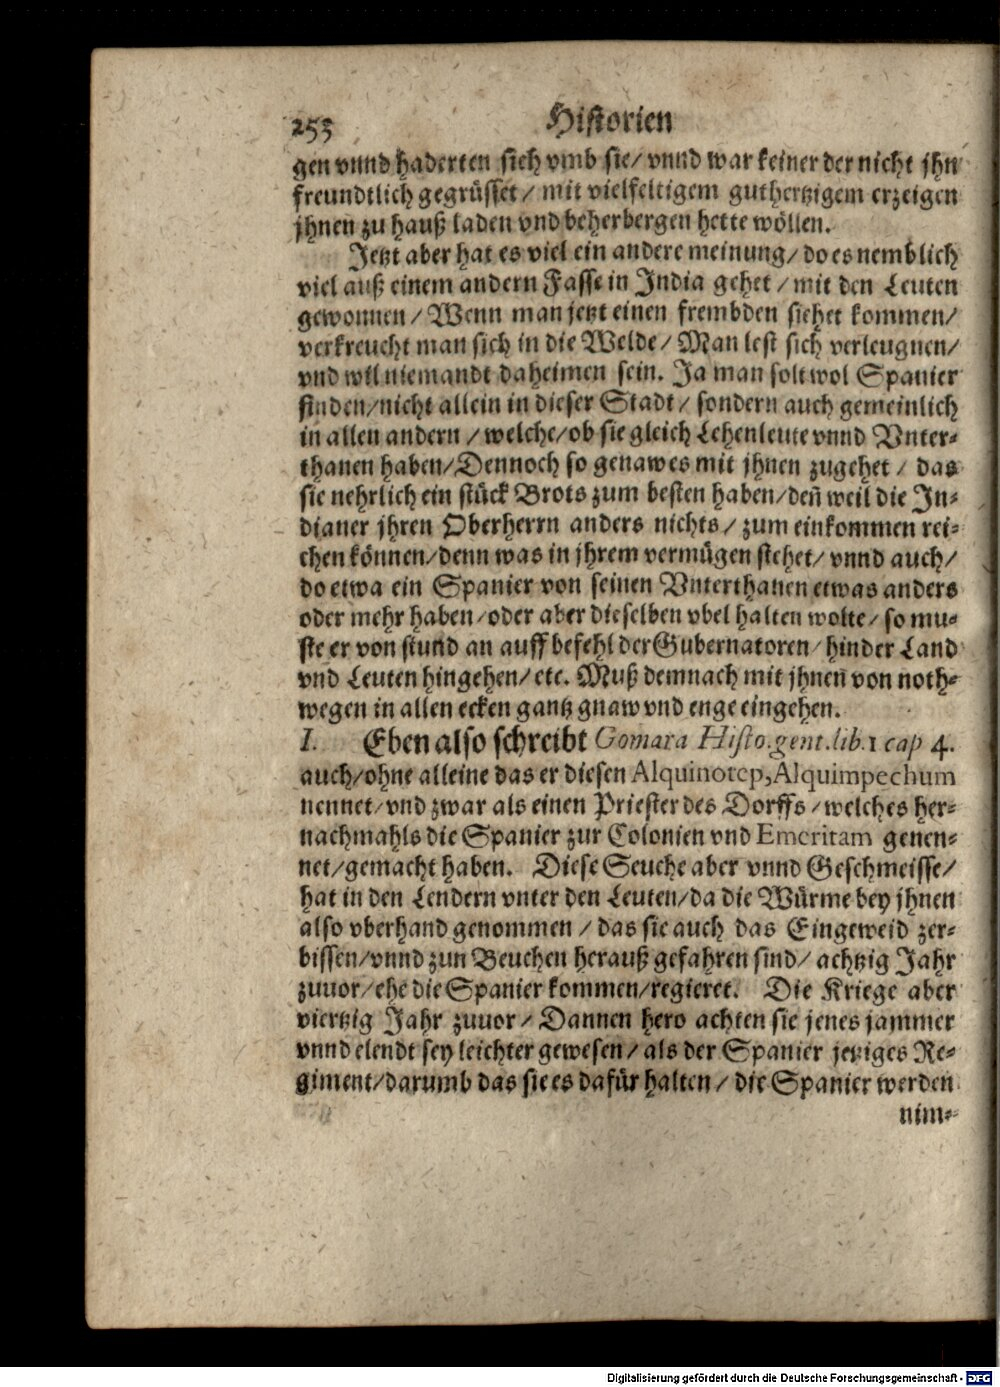 253 Historien
gen vnnd haderten sich vmb sie/ vnnd war keiner der nicht jhn
freundtlich gegrüsset/ mit vielfeltigem guthertzigem erzeigen
jhnen zu hauß laden vnd beherbergen hette wöllen.
Jetzt aber hat es viel ein andere meinung/ do es nemblich
viel auß einem andern Fasse in India gehet/ mit den Leuten
gewonnen/ Wenn man jetzt einen frembden siehet kommen/
verkreucht man sich in die Welde/ Man lest sich verleugnen/
vnd wil niemandt daheimen sein. Ja man solt wol Spanier
finden/ nicht allein in dieser Stadt/ sondern auch gemeinlich
in allen andern/ welche/ ob sie gleich Lehenleute vnnd Vnter-
thanen haben/ Dennoch so genaw es mit jhnen zugehet/ das
sie nehrlich ein stück Brots zum besten haben/ deñ weil die In-
dianer jhren Oberherrn anders nichts/ zum einkommen rei-
chen können/ denn was in jhrem vermügen stehet/ vnnd auch/
do etwa ein Spanier von seinen Vnterthanen etwas anders
oder mehr haben/ oder aber dieselben vbel halten wolte/ so mu-
ste er von stund an auff befehl der Gubernatoren/ hinder Land
vnd Leuten hingehen/ etc. Muß demnach mit jhnen von noth-
wegen in allen ecken gantz gnaw vnd enge eingehen.
I. Eben also schreibt Gomara Histo.gent.lib.1 cap 4.
auch/ ohne alleine das er diesen Alquinotep, Alquimpechum
nennet/ vnd zwar als einen Priester des Dorffs/ welches her-
nachmahls die Spanier zur Colonien vnd Emeritam genen-
net/ gemacht haben. Diese Seuche aber vnnd Geschmeisse/
hat in den Lendern vnter den Leuten/ da die Würme bey jhnen
also vberhand genommen/ das sie auch das Eingeweid zer-
bissen/ vnnd zun Beuchen herauß gefahren sind/ achtzig Jahr
zuuor/ ehe die Spanier kommen/ regieret. Die Kriege aber
viertzig Jahr zuuor/ Dannen hero achten sie jenes jammer
vnnd elendt sey leichter gewesen/ als der Spanier jetziges Re-
giment/ darumb das sie es dafür halten/ die Spanier werden
nim-
Digitalisierung gefördert durch die Deutsche Forschungsgemeinschaft - DFG